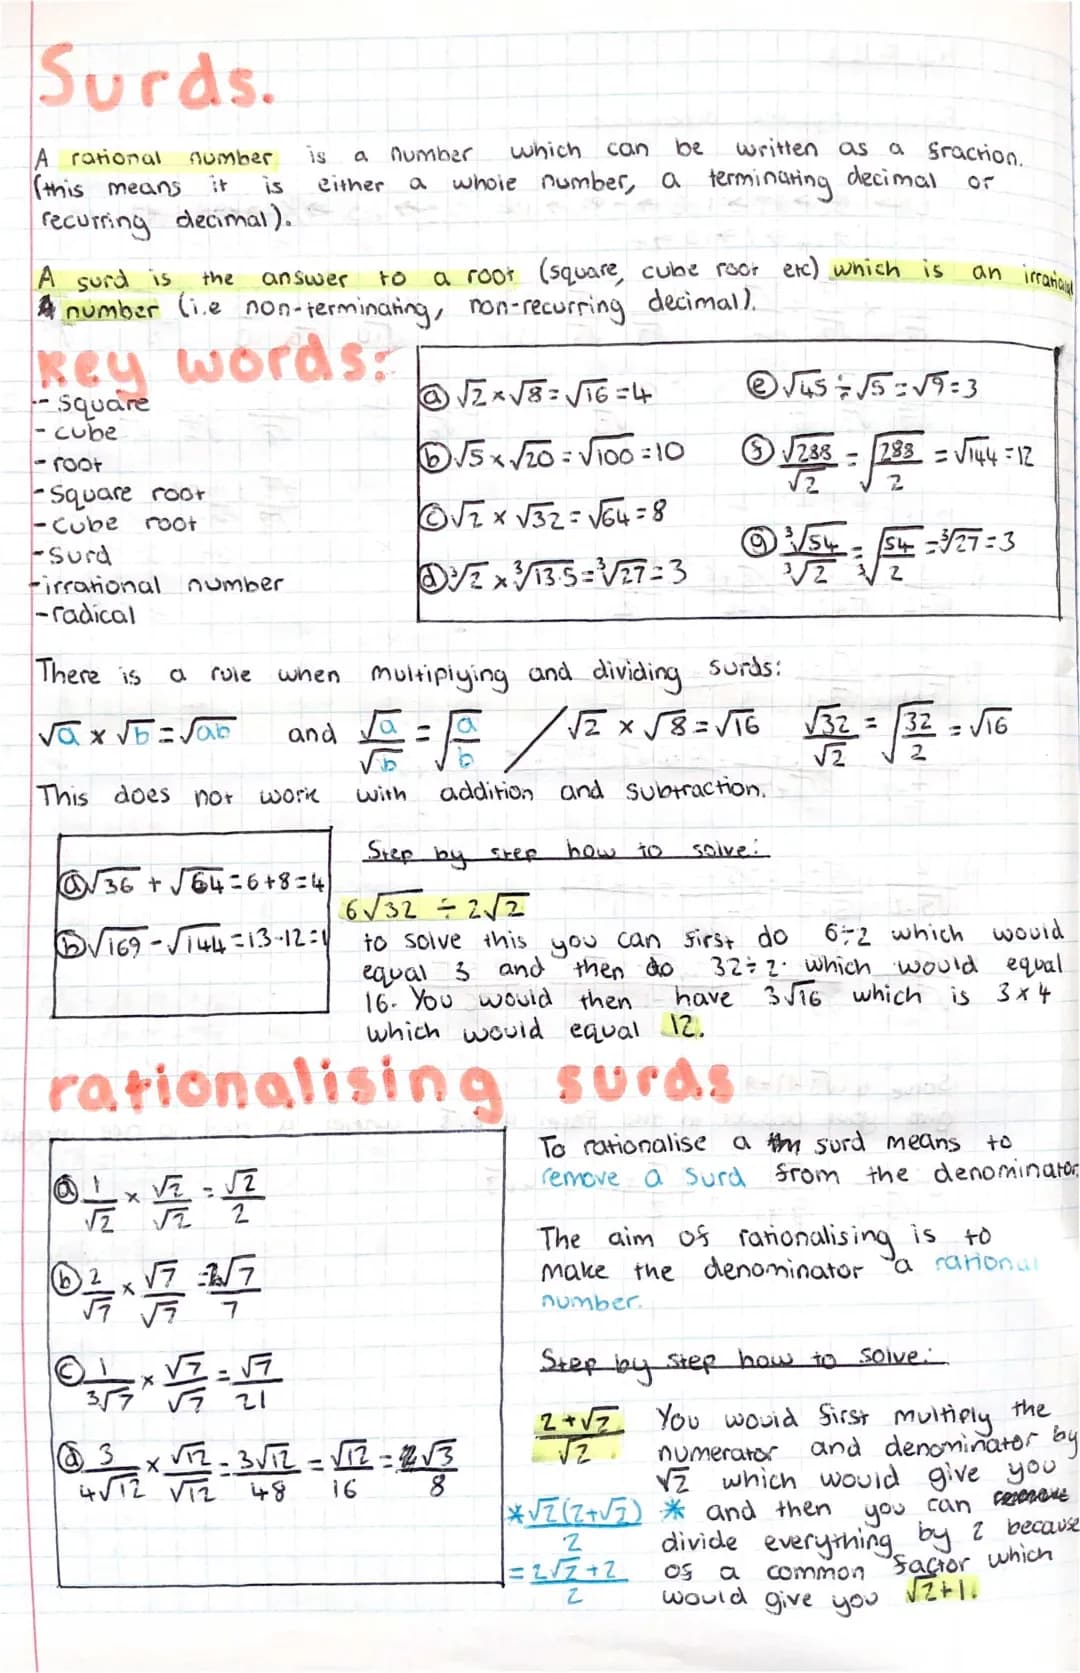 Surds.
A rational number is a number which can be written as a fraction.
(this means it is either a whole number, a terminating decimal or
recurring decimal).
A surd is the answer to a root (square, cube root etc) which is an irrational
number (i.e non-terminating, non-recurring decimal).
key words:
- square
- cube
- root
- Square root
- Cube root
- Surd
- irrational number
- radical
ⓐ √2 × √8 = √16 = 4
ⓑ √5 × √20 = √100 = 10
ⓒ √2 × √32 = √64 = 8
ⓓ ³√2 × ³√13.5 = ³√27 = 3
ⓔ √45 ÷ √5 = √9 = 3
ⓕ √288/√2 = √(288/2) = √144 = 12
ⓖ ³√54/³√2 = ³√(54/2) = ³√27 = 3
There is a rule when multiplying and dividing surds:
√a × √b = √ab and √a/√b = √(a/b) / √2 × √8 = √16 √32/√2 = √(32/2) = √16
This does not work with addition and subtraction.
ⓐ √36 + √64 = 6+8 = 4
ⓑ √169 - √144 = 13-12 = 1
Step by step how to solve:
6√32 ÷ 2√2
to solve this you can first do 6÷2 which would
equal 3 and then do 32÷2. which would equal
16. You would then have 3√16 which is 3×4
which would equal 12.
rationalising surds
ⓐ 1/√2 × √2/√2 = √2/2
ⓑ 2/√7 × √7/√7 = 2√7/7
ⓒ 1/3√7 × √7/√7 = √7/21
ⓓ 3/4√12 × √12/√12 = 3√12/48 = √12/16 = √3/8
To rationalise a surd means to
remove a surd from the denominator.
The aim of rationalising is to
make the denominator a rational
number.
Step by step how to solve:
2+√2/√2
You would first multiply the
numerator and denominator by
√2 which would give you
* √2(2+√2)/2 * and then you can
= 2√2+2/2
divide everything by 2 because
of a common factor which
would give you √2+1.